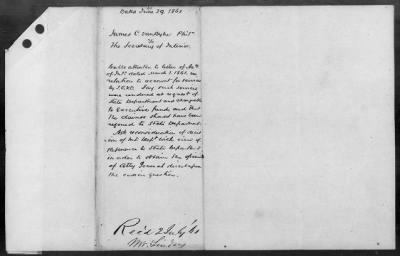 Date June 29, 1861
James C. VanDyke Phila
to
The Secretary of Interior.
Calls attention to letter of
of Int. dated March 1, 1861, in
relation to account for services
by J.C.V.D. Says such services
were rendered at request of
State Department and chargeable
to Executive funds and that
the claims should have been
referred to State Department.
Ask reconsideration of decis
ion of Int. Dept. with view of
reference to State Department
in order to obtain the
of Atty General
the question.
Rec'd 2 July 61
Mr.